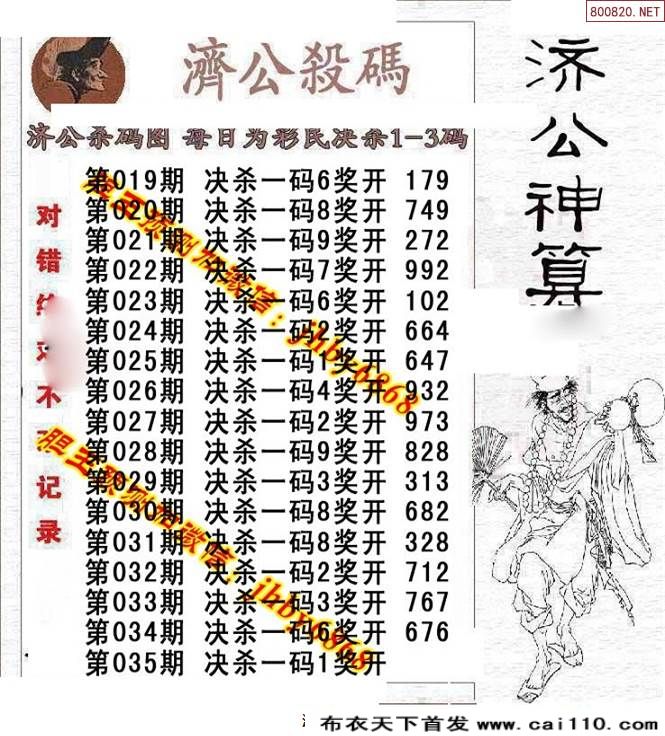 800820.NET
濟公殺碼
济公神算
济公杀码图 每日为彩民决杀1-3码
对错 不 记录
第019期 决杀一码6奖开 179
第020期 决杀一码8奖开 749
第021期 决杀一码9奖开 272
第022期 决杀一码7奖开 992
第023期 决杀一码6奖开 102
第024期 决杀一码2奖开 664
第025期 决杀一码1奖开 647
第026期 决杀一码4奖开 932
第027期 决杀一码2奖开 973
第028期 决杀一码9奖开 828
第029期 决杀一码3奖开 313
第030期 决杀一码8奖开 682
第031期 决杀一码8奖开 328
第032期 决杀一码2奖开 712
第033期 决杀一码3奖开 767
第034期 决杀一码6奖开 676
第035期 决杀一码1奖开
微信: jhby6868
微信: jhby6868
布衣天下首发 www.cai110.com